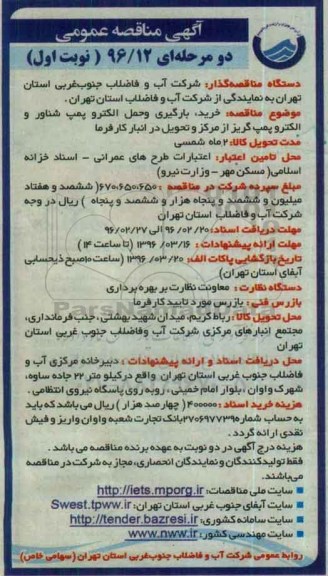 آگهی مناقصه عمومی
دو مرحله‌ای ۹۶/۱۲ ( نوبت اول)
دستگاه مناقصه‌گذار: شرکت آب و فاضلاب جنوب‌غربی استان
تهران به نمایندگی از شرکت آب و فاضلاب استان تهران .
موضوع مناقصه: خرید، بارگیری وحمل الکترو پمپ شناور و
الکترو پمپ گریز از مرکز و تحویل در انبار کارفرما
مدت تحویل کالا: ۲ ماه شمسی
محل تامین اعتبار: اعتبارات طرح های عمرانی - اسناد خزانه
اسلامی( مسکن مهر - وزارت نیرو)
مبلغ سپرده شرکت در مناقصه : ۶۷۰،۶۵۰،۶۵۰( ششصد و هفتاد
میلیون و ششصد و پنجاه هزار و ششصد و پنجاه ) ریال در وجه
شرکت آب و فاضلاب استان تهران
مهلت دریافت اسناد: ۹۶/۰۲/۲۰ الی ۹۶/۰۲/۲۷
مهلت ارائه پیشنهادات : ۱۳۹۶ /۰۳/۱۶ ( تا ساعت ۱۴ )
تاریخ بازگشایی پاکات الف: ۱۳۹۶ /۰۳/۲۰ (ساعت۱۰صبح ذیحسابی
آبفای استان تهران)
دستگاه نظارت : معاونت نظارت بر بهره برداری
بازرس فنی : بازرس مورد تایید کارفرما
محل تحویل کالا : رباط کریم، میدان شهید بهشتی، جنب فرمانداری،
مجتمع انبارهای مرکزی شرکت آب وفاضلاب جنوب غربی استان
تهران
محل دریافت اسناد و ارائه پیشنهادات : دبیرخانه مرکزی آب و
فاضلاب جنوب غربی استان تهران واقع درکیلو متر ۲۲ جاده ساوه،
شهرک واوان ، بلوار امام خمینی ، روبه روی پاسگاه نیروی انتظامی .
هزینه خرید اسناد : ۴۰۰۰۰۰( چهارصد هزار ) ریال می باشد که باید
به حساب شماره ۲۷۰۶۹۷۷۳۹۵بانک تجارت شعبه واوان واریز و فیش
نقدی ارائه گردد .
هزینه درج آگهی در دو نوبت به عهده برنده مناقصه می باشد .
فقط تولیدکنندگان و نمایندگان انحصاری، مجاز به شرکت در مناقصه
می‌باشند.
سایت ملی مناقصات: http://iets.mporg.ir
سایت آبفای جنوب غربی استان تهران: Swest.tpww.ir
سایت سامانه کشوری: http://tender.bazresi.ir
سایت مهندسی کشور: www.nww.ir
روابط عمومی شرکت آب و فاضلاب جنوب‌غربی استان تهران (سهامی خاص)